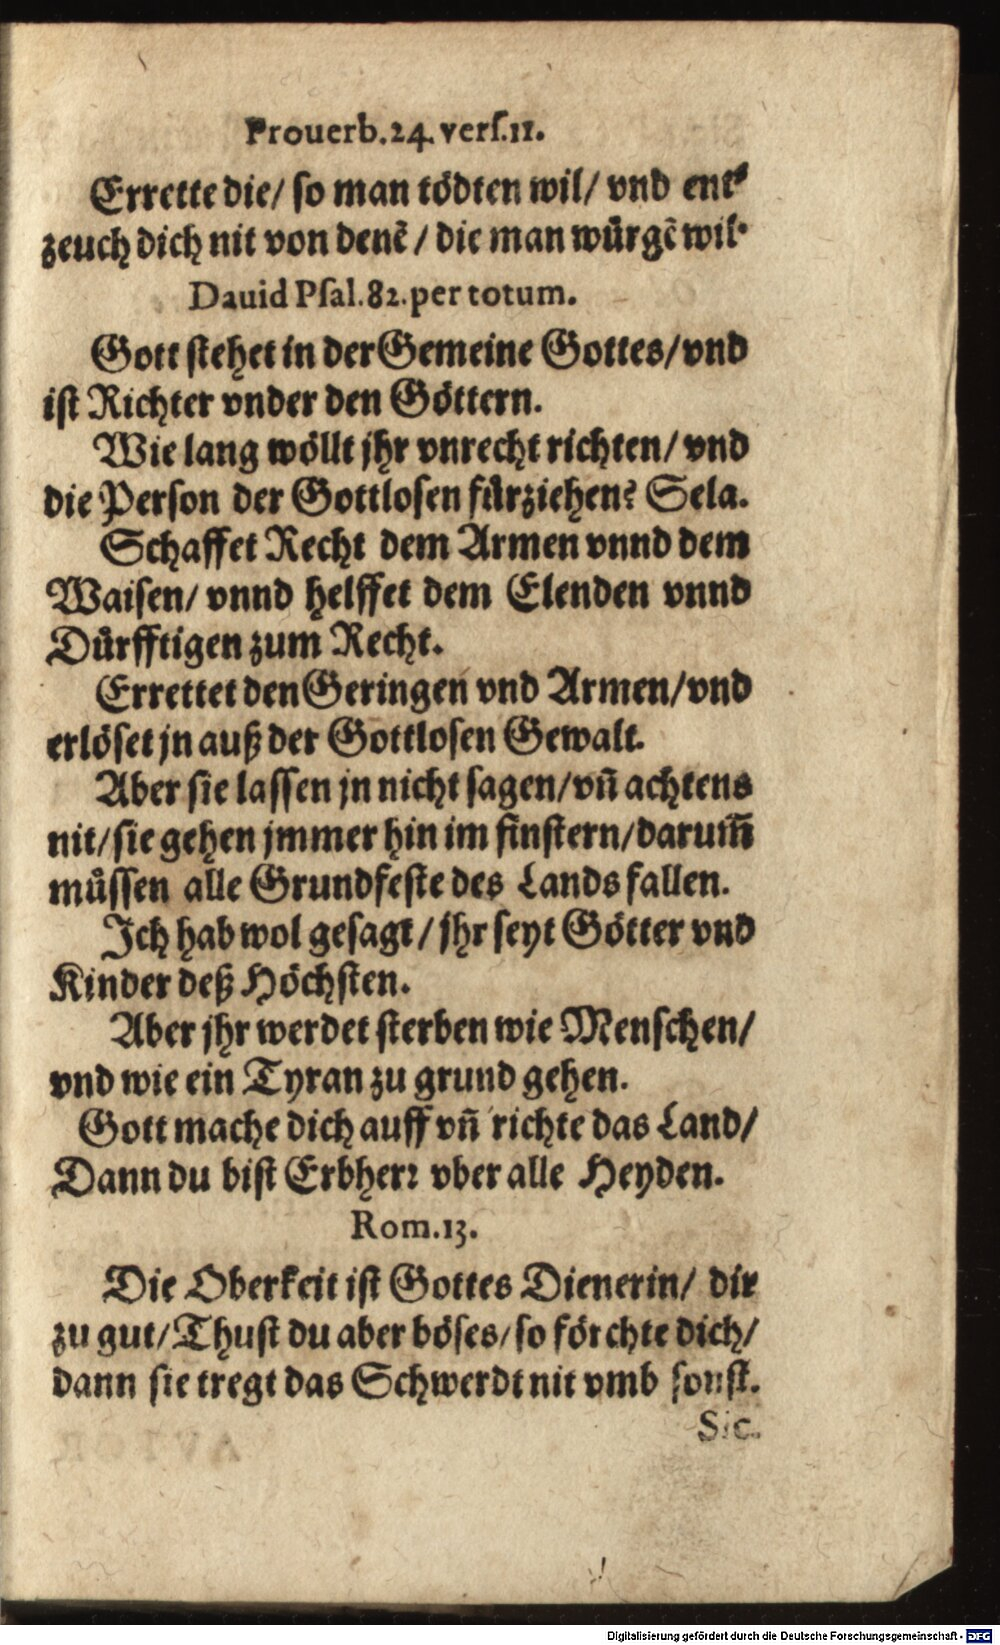 Prouerb.24. vers.11.
Errette die/ so man tödten wil/ vnd ent⸗
zeuch dich nit von denẽ / die man würgẽ wil.
Dauid Psal.82. per totum.
Gott stehet in der Gemeine Gottes/vnd
ist Richter vnder den Göttern.
Wie lang wöllt jhr vnrecht richten/ vnd
die Person der Gottlosen fürziehen? Sela.
Schaffet Recht dem Armen vnnd dem
Waisen/ vnnd helffet dem Elenden vnnd
Dürfftigen zum Recht.
Errettet den Geringen vnd Armen/vnd
erlöset jn auß der Gottlosen Gewalt.
Aber sie lassen jn nicht sagen/vñ achtens
nit/sie gehen jmmer hin im finstern/darum̃
müssen alle Grundfeste des Lands fallen.
Ich hab wol gesagt / jhr seyt Götter vnd
Kinder deß Höchsten.
Aber jhr werdet sterben wie Menschen/
vnd wie ein Tyran zu grund gehen.
Gott mache dich auff vñ richte das Land/
Dann du bist Erbherr vber alle Heyden.
Rom.13.
Die Oberkeit ist Gottes Dienerin/ dir
zu gut/Thust du aber böses/so förchte dich/
dann sie tregt das Schwerdt nit vmb sonst.
Sic.
Digitalisierung gefördert durch die Deutsche Forschungsgemeinschaft - DFG